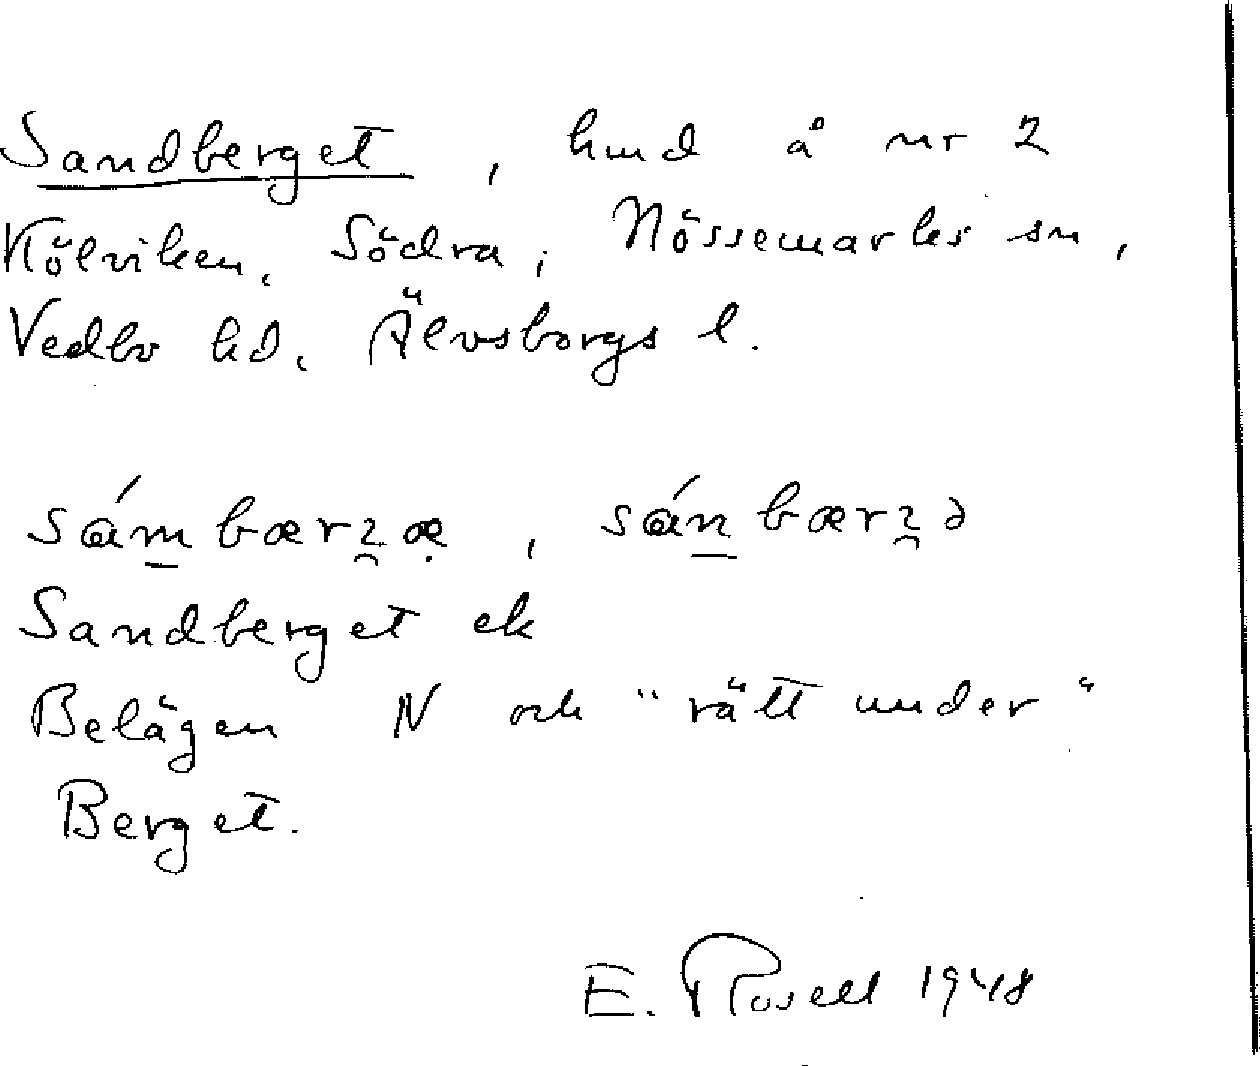 Sandberget, hmd å nr 2
Kölviken, Södra, Nössemarks sn,
Vedbo hd, Älvsborgs l.
Sandberget ek
Belägen N och "rätt under"
Berget.
E. Rosell 1948